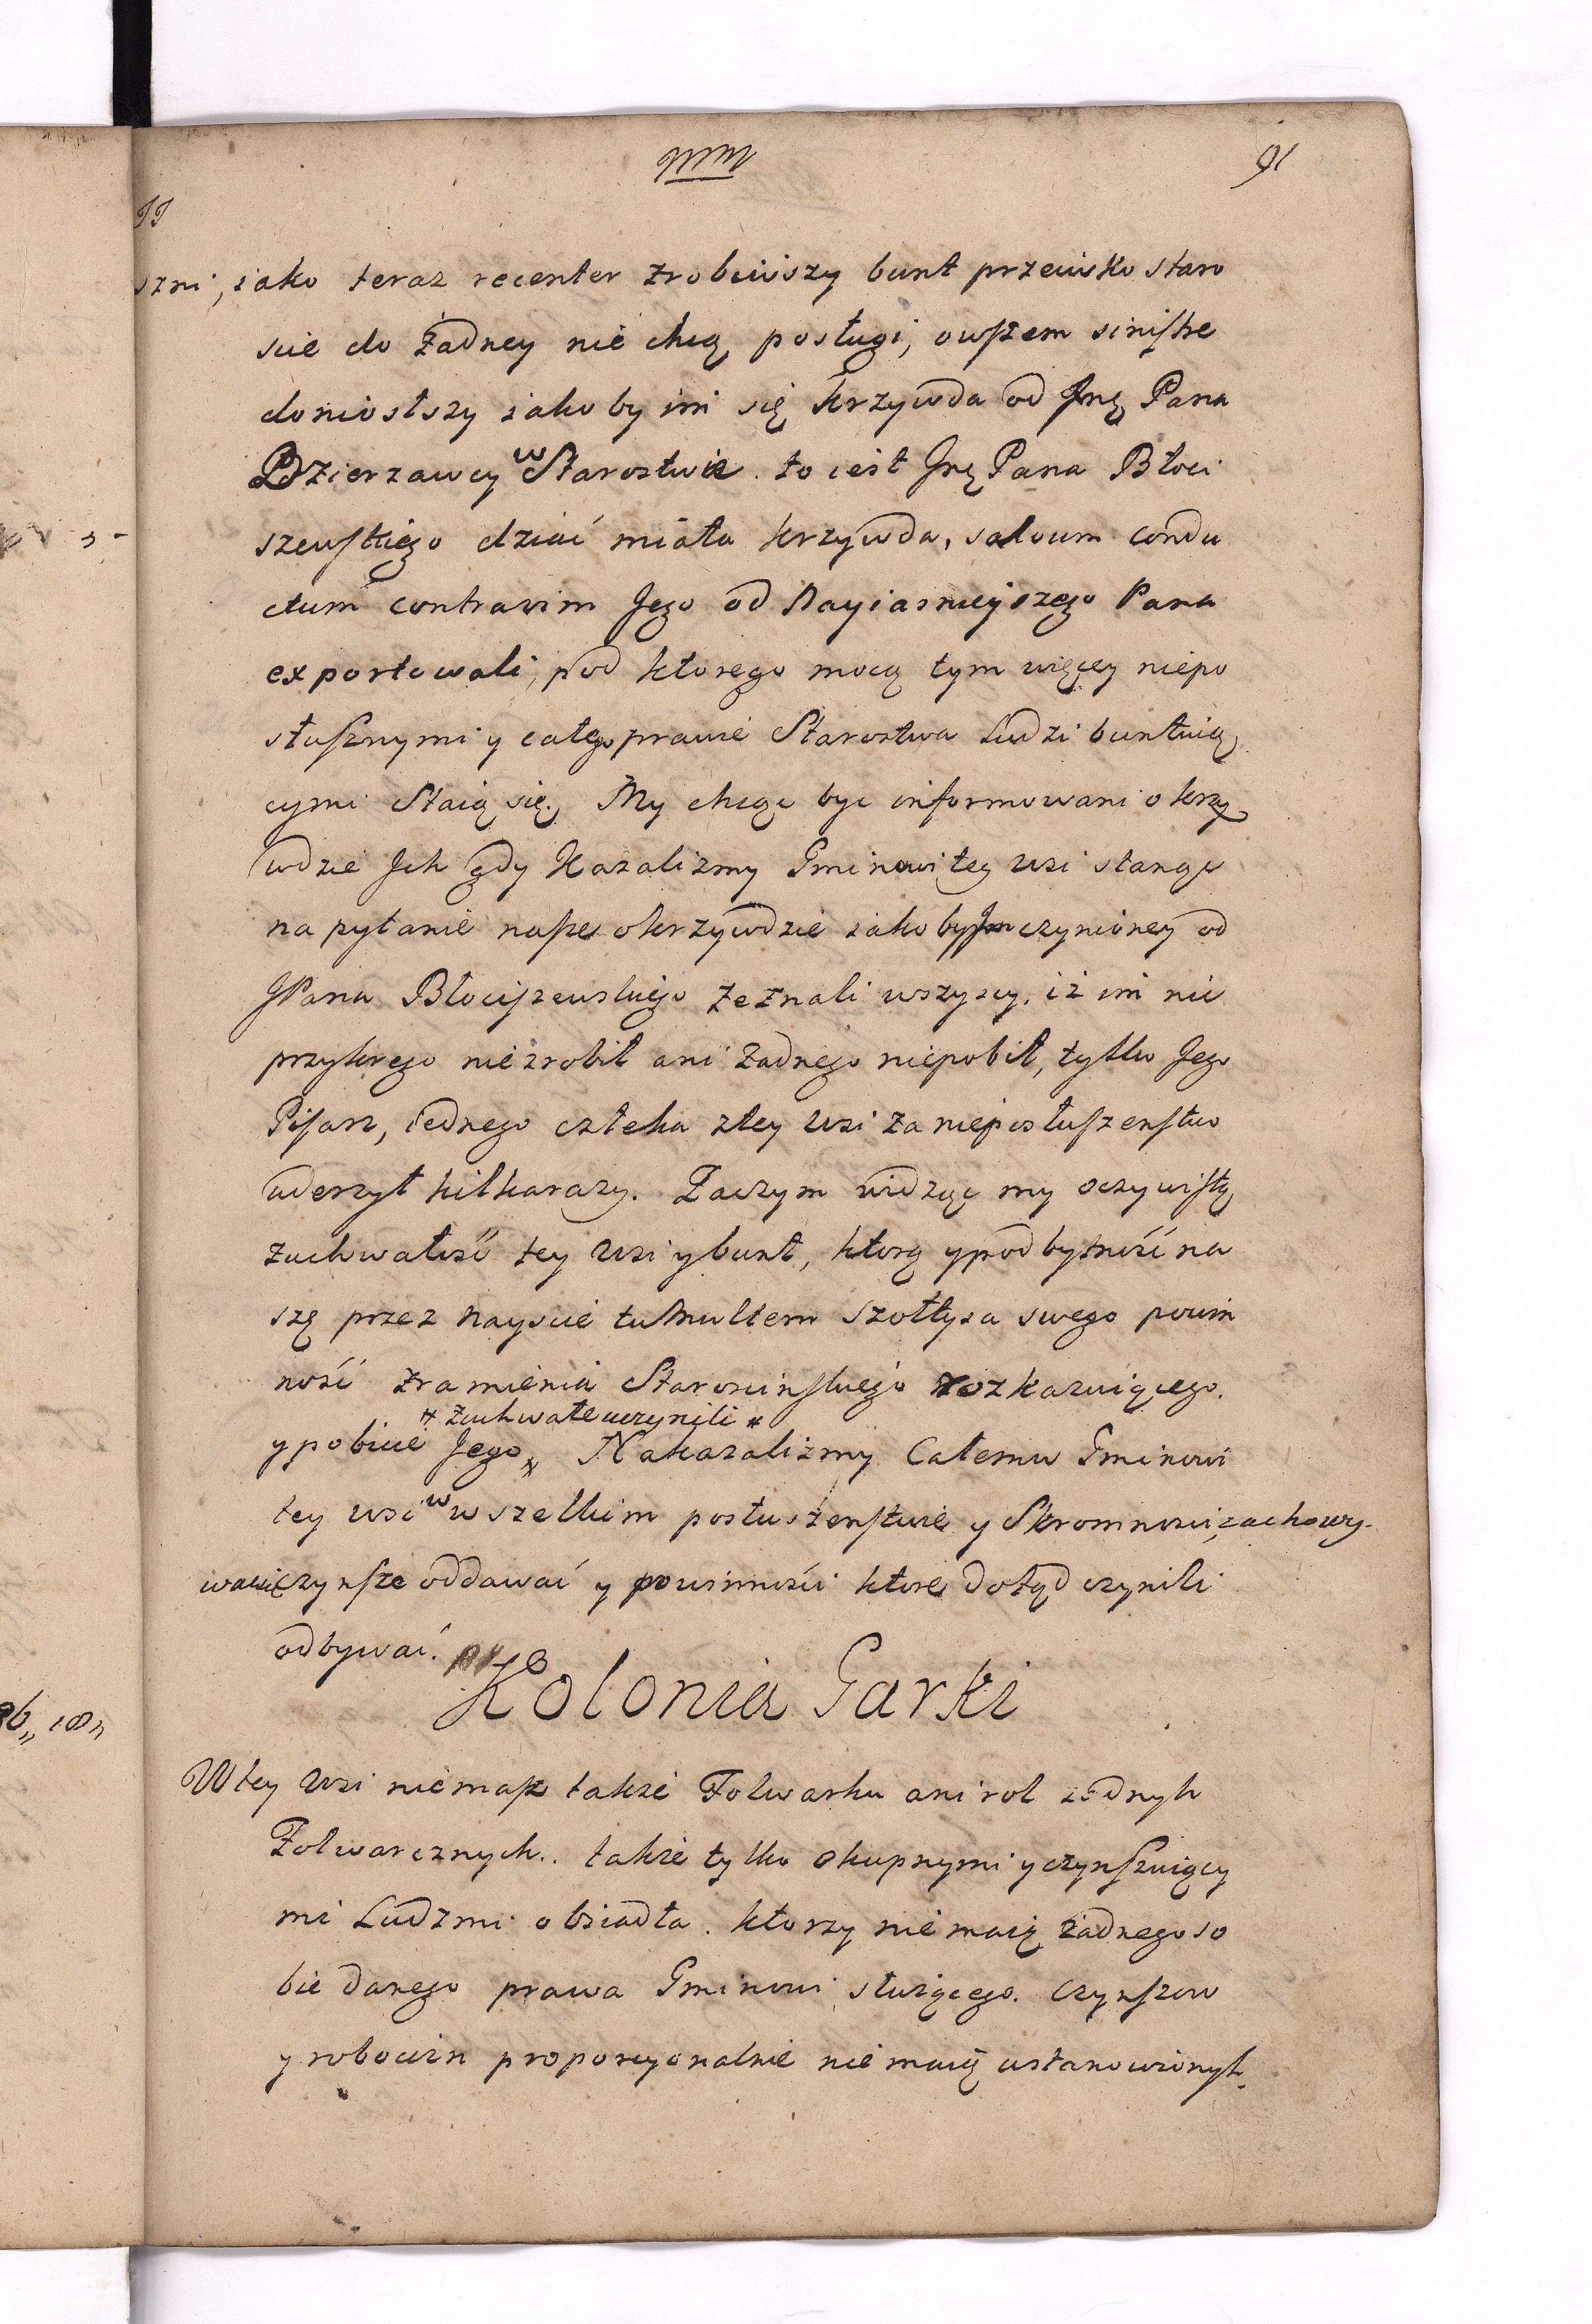 91
szni, iako teraz recenter zrobiwszy bunt przeciwko staro
scie do żadney nie chcą posługi, owszem sinistre
doniosłszy iakoby im się krzywda od Jmę Pana
Dzierzawcy w Starostwie. to iest Jmę Pana Błoci
szewskiego dziać miała krzywda, salvum condu
ctum contravim Jego od Nayiasnieyszego Pana
exportowali, pod ktorego mocą tym więcey niepo
słusznymi y całego prawie Starostwa Ludzi buntuią
cymi Staią się. My chcąc byc informowani o krzy
wdzie Jch gdy Kazalizmy Gminowi tey wsi stanąc
na pytanie nasze o krzywdzie iakoby Jm czynioney od
JPana Błociszewskiego zeznali wszyscy. iż im nic
przykrego nie zrobił ani żadnego niepobił, tylko Jego
Pisarz, iednego człeka z tey wsi za nieposłuszenstwo
uderzył kilka razy. Zaczym widząc my oczywistą
zuchwałość tey wsi y bunt, ktorą y pod bytność na
szę przez nayscie tumultem szołtysa swego powin
ność z ramienia Starościnskiego rozkazuiącego.
# zuchwale uczynili #
y pobicie Jego # Nakazalizmy Całemu Gminowi
tey wsi w wszelkim posłuszenstwie y Skromnosci zachowy-
wać się czynsze oddawać y powinności ktore dotąd czynili
odbywać.
Kolonia Garki
W tey wsi niemasz takze Folwarku ani rol żadnych
Folwarcznych.. takze tylko okupnymi y czynszuiący
mi Ludzmi osiadła. ktorzy nie maią żadnego so
bie danego prawa Gminowi służącego. Czynszow
y robocizn proporcyonalnie nie maią ustanowionych.